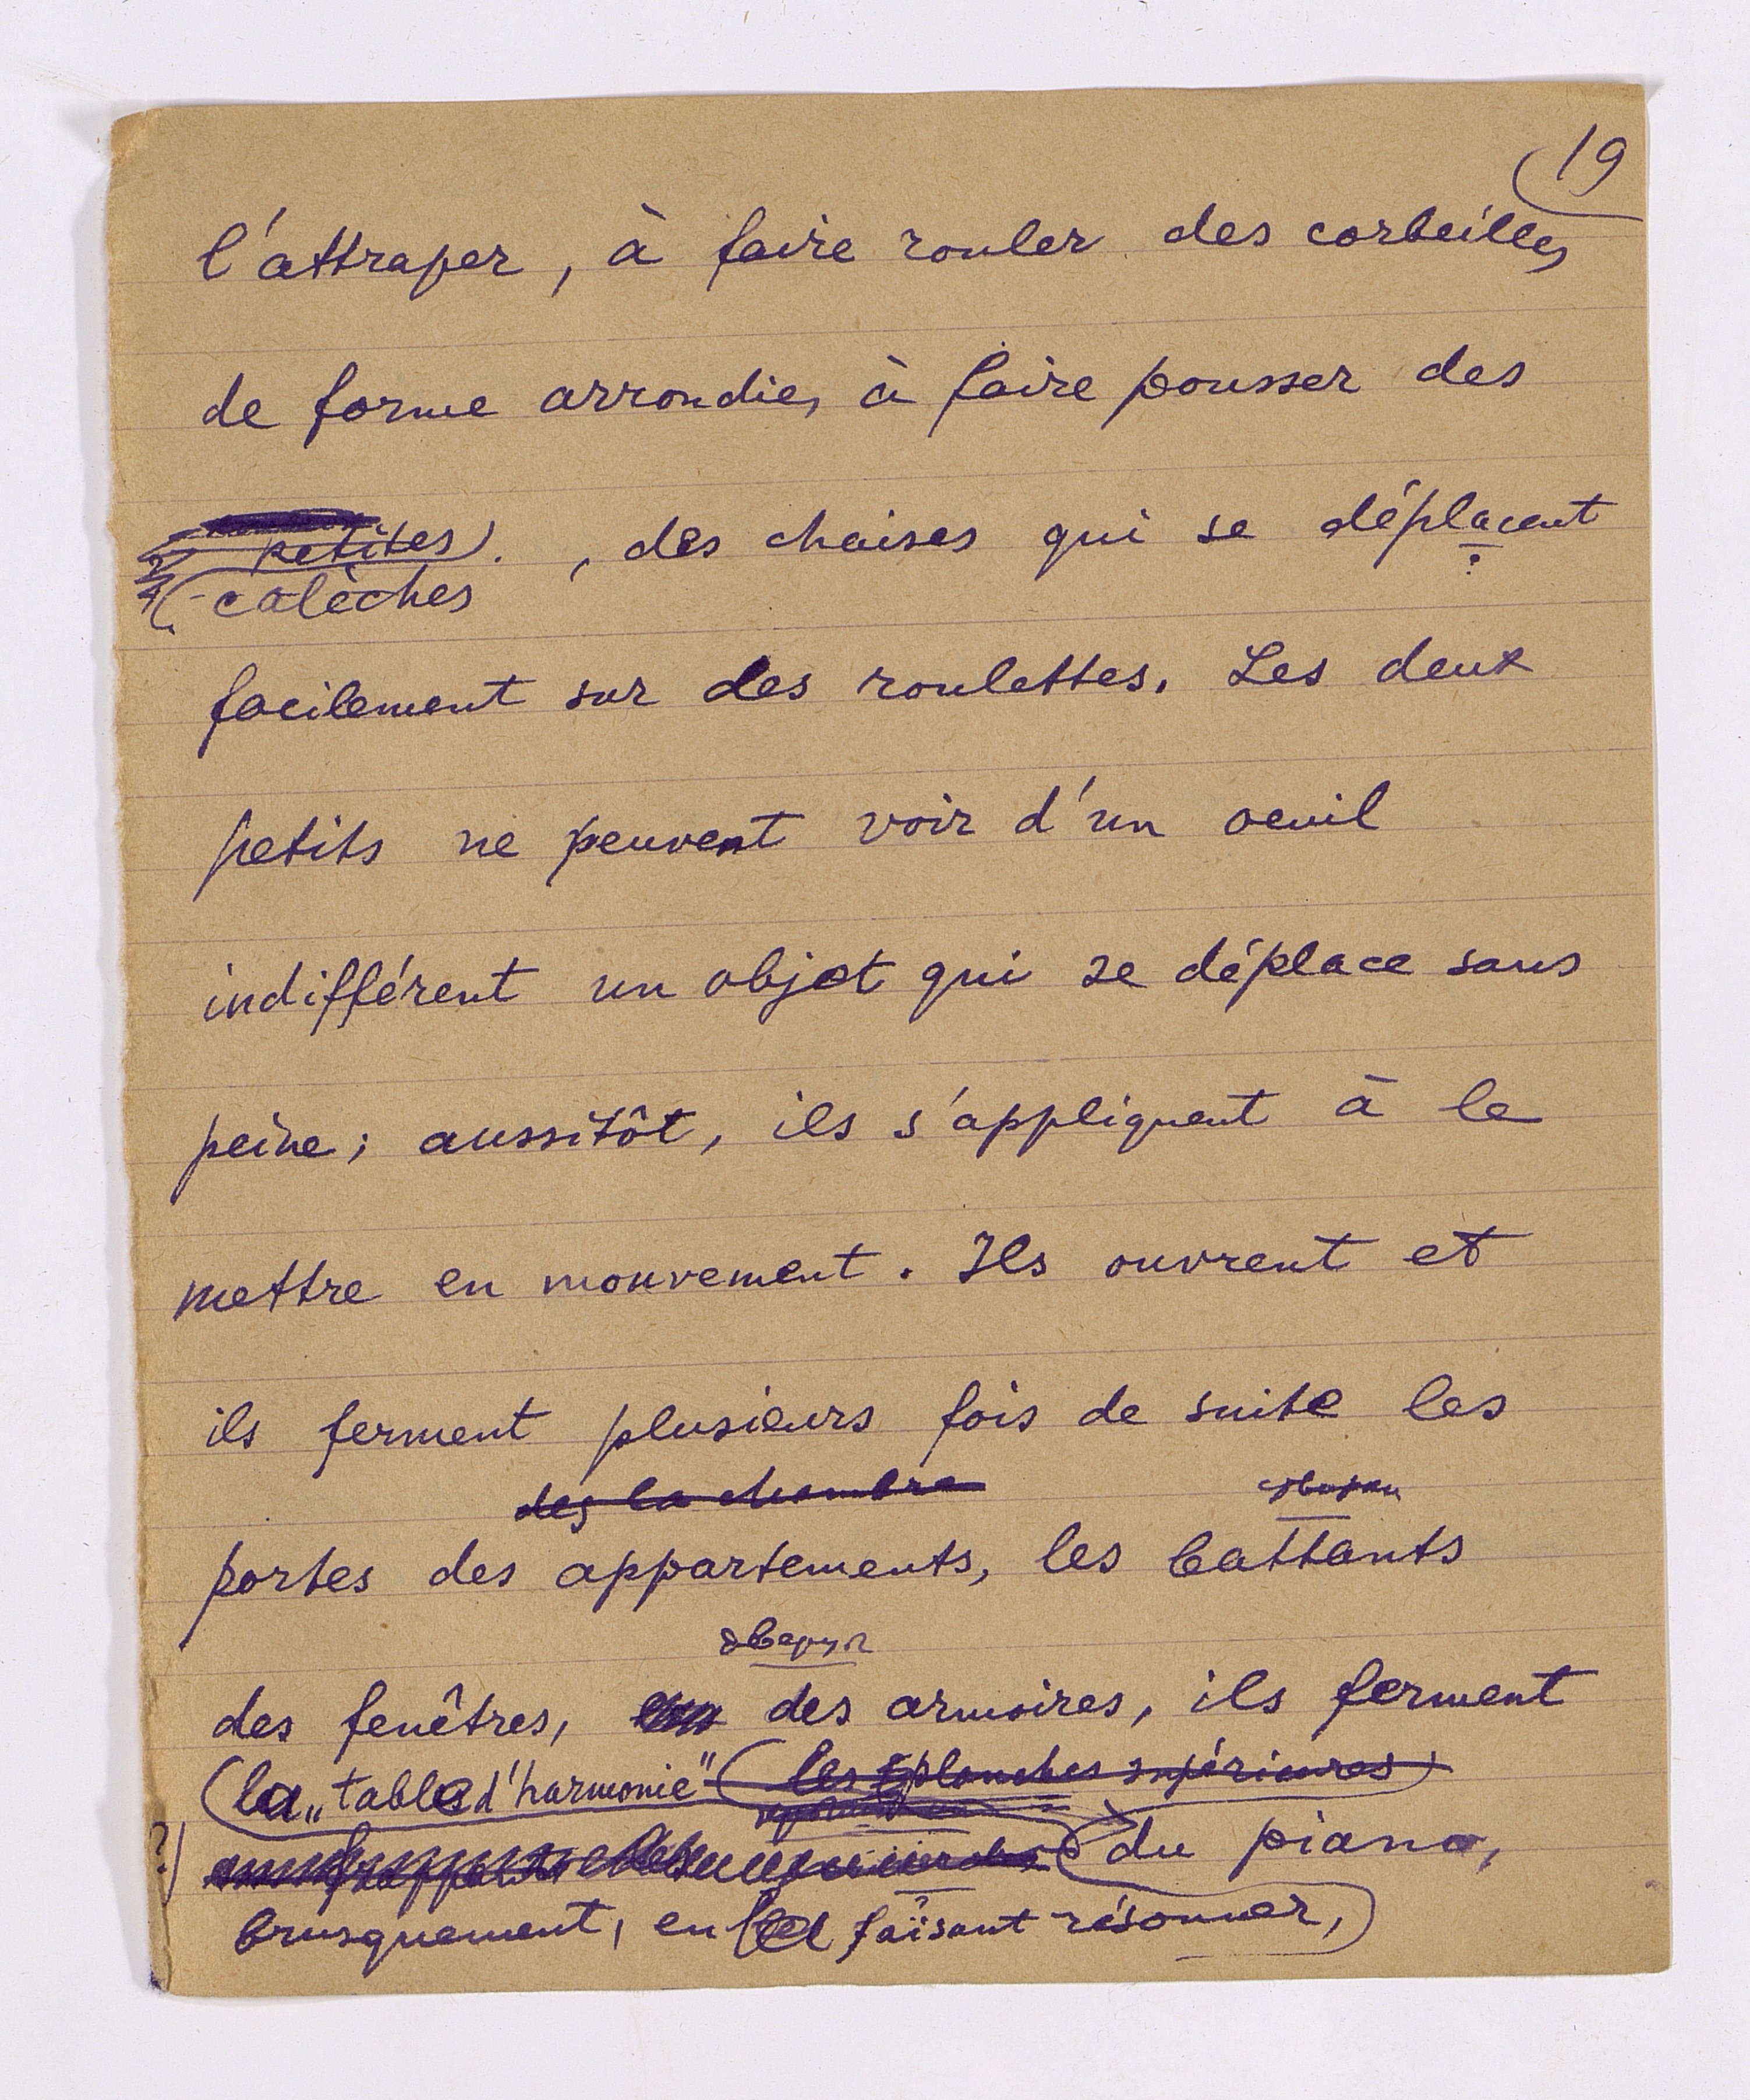 19
l'attraper, à faire rouler des corbeilles
de forme arrondie, à faire pousser des
petites
calèches , des chaises qui se déplacent
facilement sur des roulettes. Les deux
petits ne peuvent voir d'un oeuil
indifférent un objet qui se déplace sans
peine; aussitôt, ils s'appliquent à le
mettre en mouvement. Ils ouvrent et
ils ferment plusieurs fois de suite les
des la chambre
portes des appartements, les battants
des fenêtres, des armoires, ils ferment
(la „table d'harmonie" (les planches supérieures)
du piano,
brusquement, en faisant résonner,